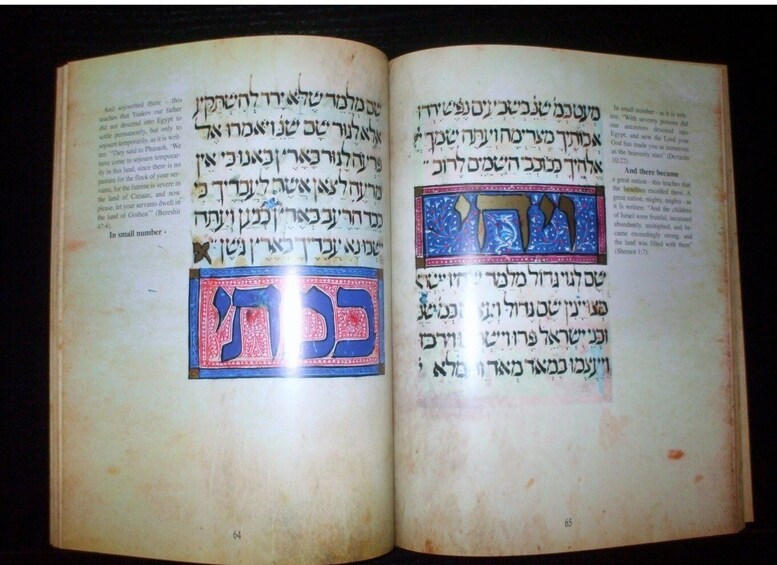 And sojourned there - this
teaches that Yaakov our father
did not descend into Egypt to
settle permanently, but only to
sojourn temporarily, as it is writ-
ten: "They said to Pharaoh, 'We
have come to sojourn temporar-
ily in this land, since there is no
pasture for the flock of your ser-
vants, for the famine is severe in
the land of Canaan, and now
please, let your servants dwell in
the land of Goshen'" (Bereshit
47:4).
In small number -
שם מלמד שלא ירד להשתקע
אלא לגור שם שנ' ויאמרו אל
פרעה לגור בארץ באנו כי אין
מרעה לצאן אשר לעבדיך כי
כבד הרעב בארץ כנען ועתה
ישבו נא עבדיך בארץ גשן
במתי
64
מעט כמ' שנ' בשבעים נפש ירדו
אבותיך מצרימה ועתה שמך
אלהיך ככוכבי השמים לרוב
ויהי
שם לגוי גדול מלמד שהיו
מצויינין שם גדול
ובני ישראל פרו וישרצו וירבו
ויעצמו במאד מאד ותמלא
In small number - as it is writ-
ten: "With seventy persons did
our ancestors descend into
Egypt, and now the Lord your
God has made you as numerous
as the heavenly stars" (Devarim
10:22).
And there became
a great nation - this teaches that
the Israelites excelled there. A
great nation, mighty, mighty - as
it is written: "And the children
of Israel were fruitful, increased
abundantly, multiplied, and be-
came exceedingly strong, and
the land was filled with them"
(Shemot 1:7).
65